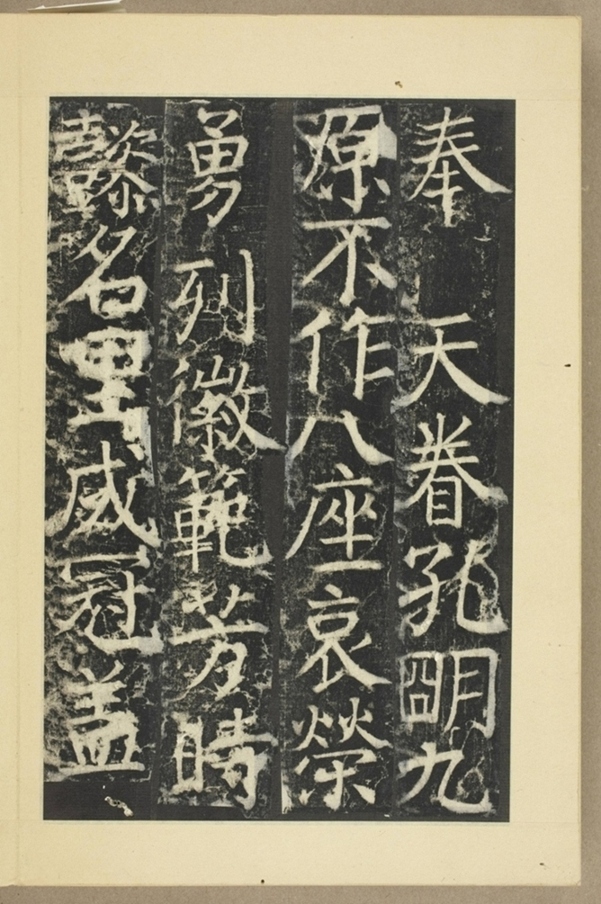 奉 天眷孔明九
原不作八座哀榮
勇列徽範芳時
懿名里威冠盖